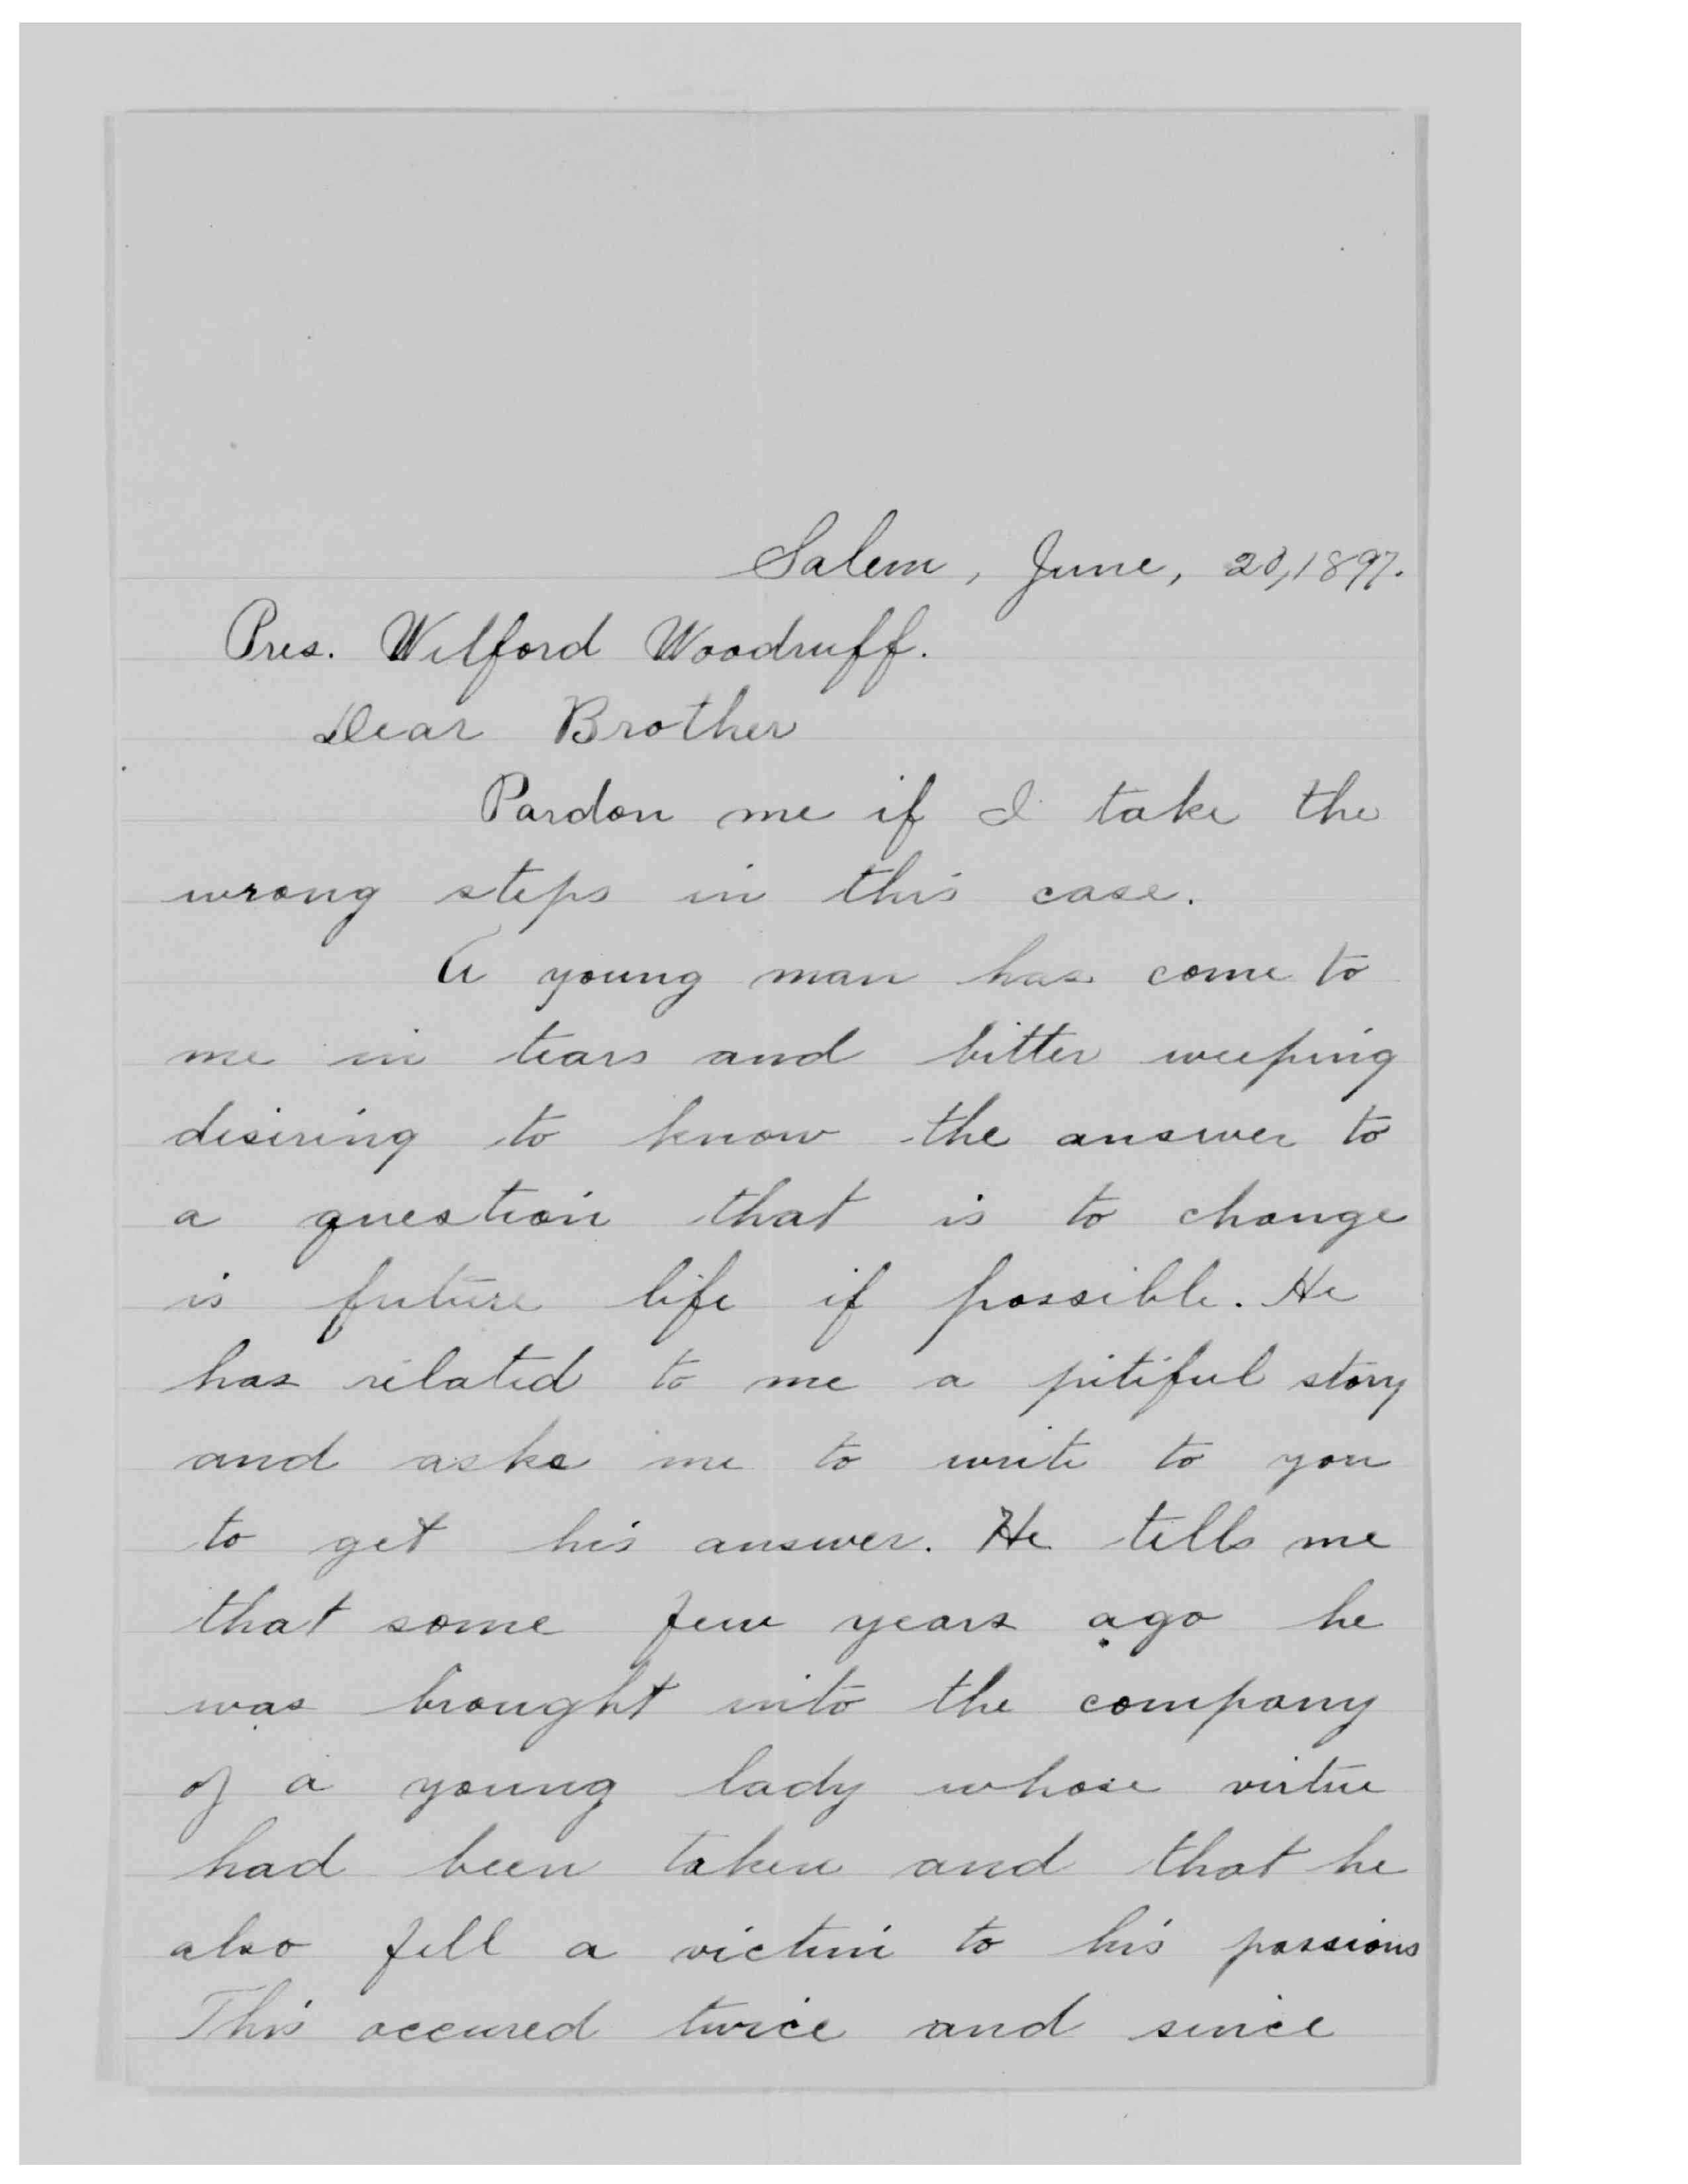 Salem, June, 20, 1897.
Pres. Wilford Woodruff.
Dear Brother
Pardon me if I take the
wrong steps in this case.
A young man has come to
me in tears and bitter weeping
desiring to know the answer to
a question that is to change
is future life if possible. He
has related to me a pitiful story
and asks me to write to you
to get his answer. He tells me
that some few years ago he
was brought into the company
of a young lady whose virtue
had been taken and that he
also fell a victim to his passions
This occured twice and since